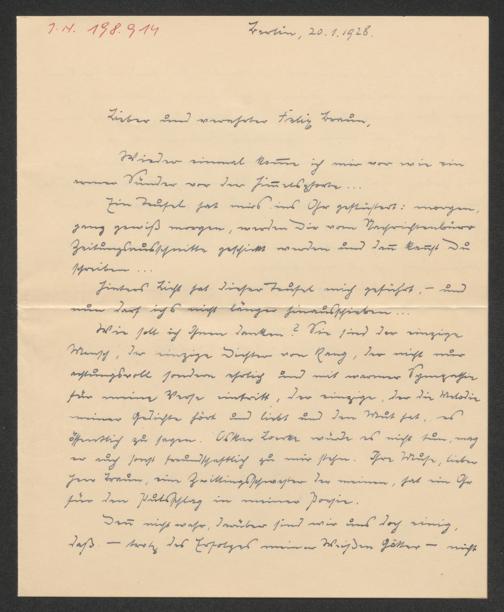 I.N. 198.914
Berlin, 20.1.1928.
Lieber und verehrter Felix Braun,
Wieder einmal komme ich mir vor wie ein
armer Sünder vor der Himmelspforte...
Ein Teufel hat mirs ins Ohr geflüstert: morgen,
ganz gewiß morgen, werden Dir vom Nachrichtenbüro
Zeitungsausschnitte geschickt werden und dann kannst Du
schreiben...
Hinters Licht hat dieser Teufel mich geführt, – und
nun darf ichs nicht länger hinausschieben...
Wie soll ich Ihnen danken? Sie sind der einzige
Mensch, der einzige Dichter von Rang, der nicht nur
achtungsvoll sondern ehrlich und mit warmer Sympathie
für meine Verse eintritt, der einzige, der die Melodie
meiner Gedichte hört und liebt und den Mut hat, es
öffentlich zu sagen. Oskar Loerke würde es nicht tun, mag
er auch sonst freundschaftlich zu mir stehn. Ihre Muse, lieber
Herr Braun, eine Zwillingsschwester der meinen, hat ein Ohr
für den Pulsschlag in meiner Poesie.
Denn nicht wahr, darüber sind wir uns doch einig,
daß – trotz des Erfolges meiner Weißen Götter – nicht